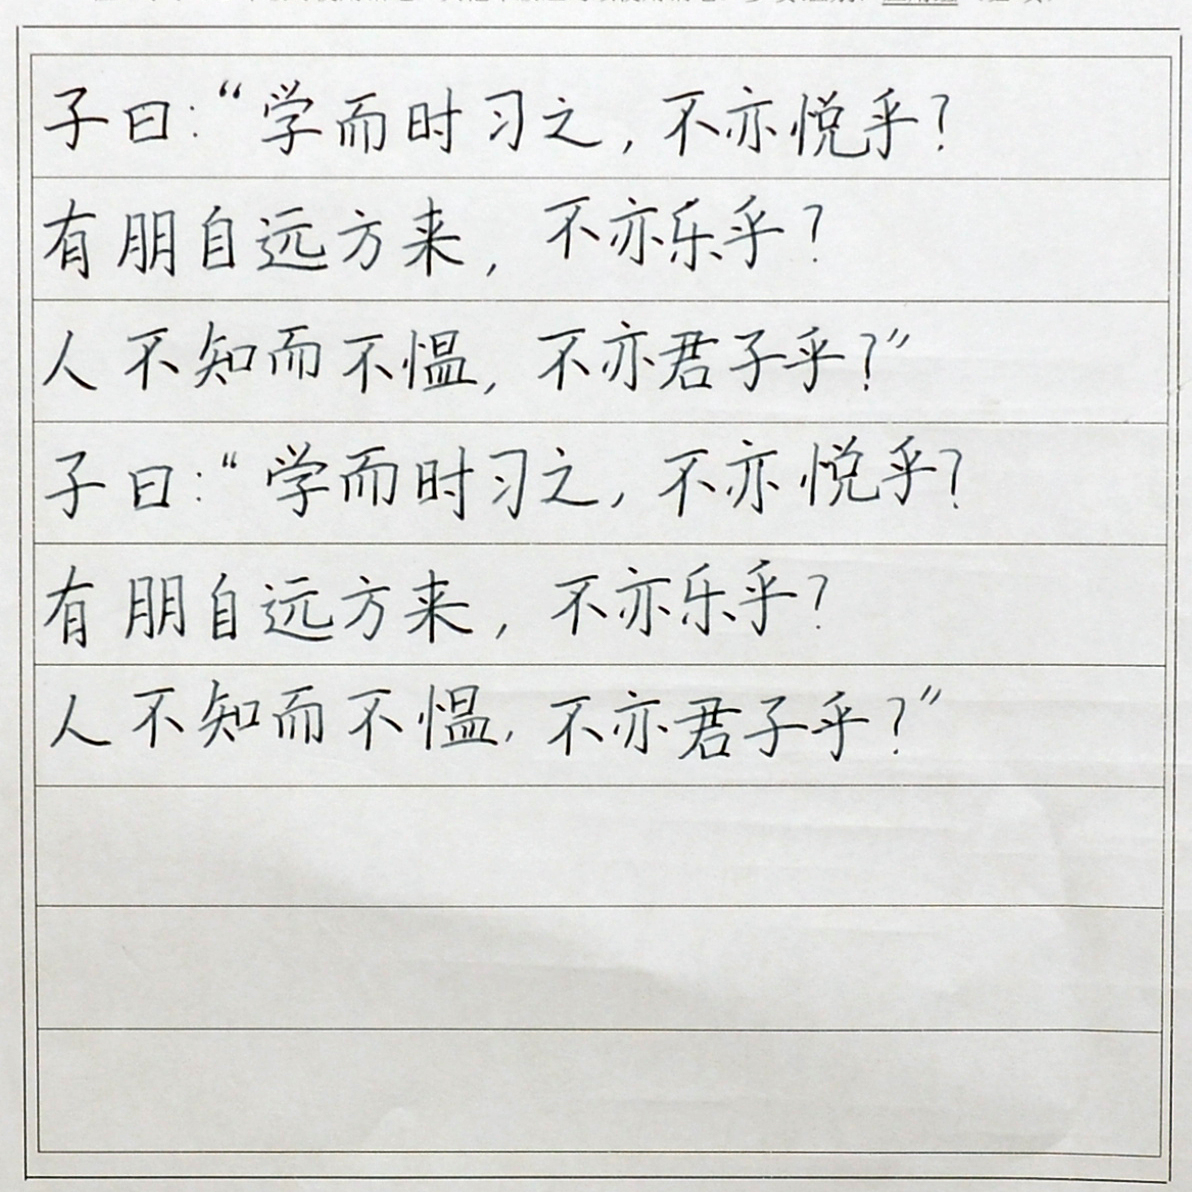 子曰:“学而时习之,不亦悦乎?
有朋自远方来,不亦乐乎?
人不知而不愠,不亦君子乎?”
子曰:“学而时习之,不亦悦乎?
有朋自远方来,不亦乐乎?
人不知而不愠,不亦君子乎?”